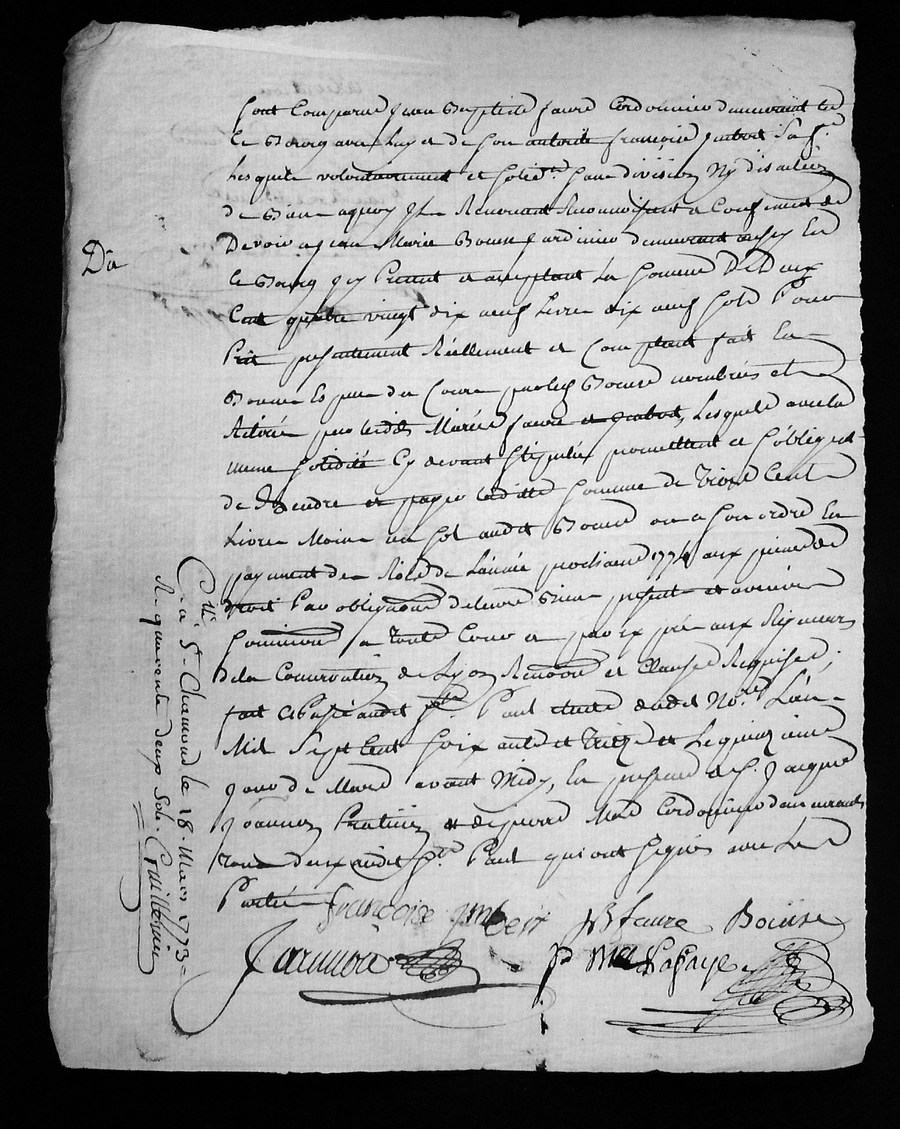 Sont Comparu Jean Baptiste faure Cordonnier demeurant en
Ce Bourg avec luy et de son autorité françoise imbert Sa f.e
Lesquels volontairement et Solid.t Sans division Ny discution
de Biens aquoy Ils Renoncent Reconnoissent & Confessent de
Devoir a jean Marie Bourse Jardinier demeurant aussy En
ce Bourg icy Present et acceptant La Somme De Deux
Cent quatre vingt dix neuf Livres dix neuf Sols Pour
Prêt presentement Réellement et Comptant fait En
Bonnes Especes de Cours par led.t Bourse nombrées et
Retirée par lesdits Mariés faure et imbert, Lesquels avec la
meme Solidité Cy devant Stipulée promettent et S'obligent
de Rendre et payer laditte Somme de Trois Cent
Livres Moins un Sol audit Bourse ou a Son ordre En
payement des Rois de L'année prochaine 1774 aux peines de
droit Par obligation de leurs Biens present et avenir
Soumissions a toutes Cours et par exprés aux Rigueurs
de la Conservation de Lyon Renoncé et Clauses Requises,
fait et Passé audit St. Paul etude dudit No.re L'an
Mil Sept Cent Soixante et Treize et Le quinzieme
Jour de Mars avant Midy, En presence de S. Jacques
Joannon Praticien & de pierre Mard Cordonnier demeurants
tous deux audit St. Paul qui ont Signés avec Les
Parties
françoise ymbert JB faure Bourse
Joannon P Mar Lafaye
Da
C.lé a St. Chamond le 18. Mars 1773
R. quarente deux Sols. Guillermin